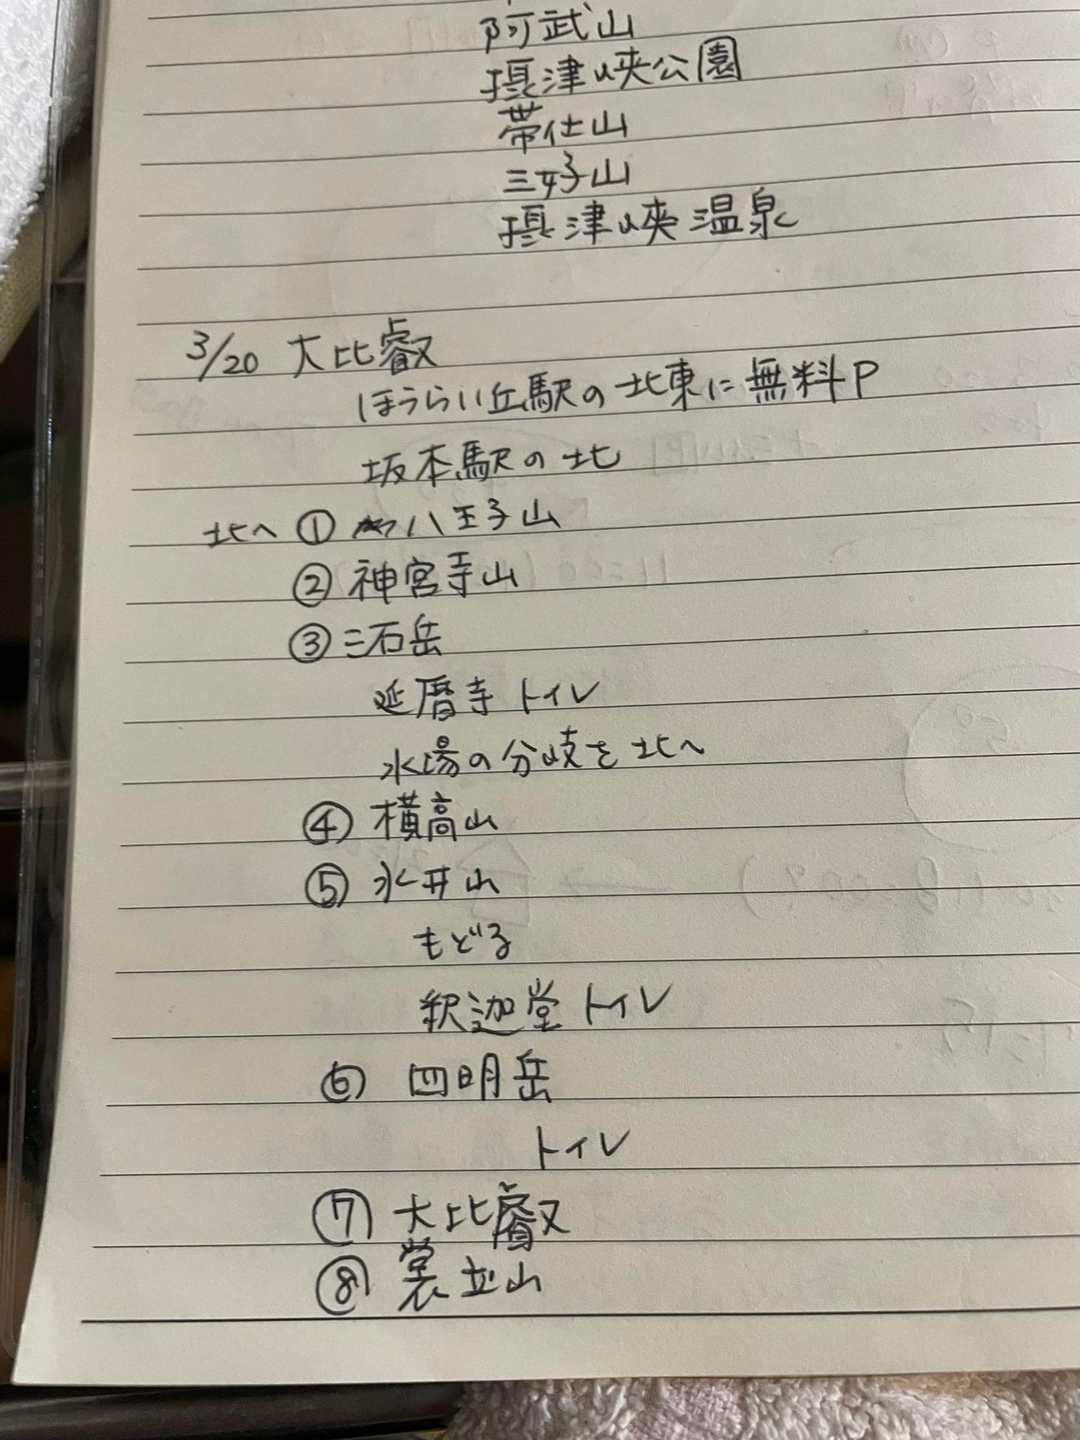 阿武山
摂津峡公園
帯仕山
三好山
摂津峡温泉
3/20 大比叡
ほうらい丘駅の北東に無料P
坂本駅の北
北へ ① 八王子山
② 神宮寺山
③ 三石岳
延暦寺トイレ
水場の分岐を北へ
④ 横高山
⑤ 水井山
もどる
釈迦堂トイレ
⑥ 四明岳
トイレ
⑦ 大比叡
⑧ 裳立山